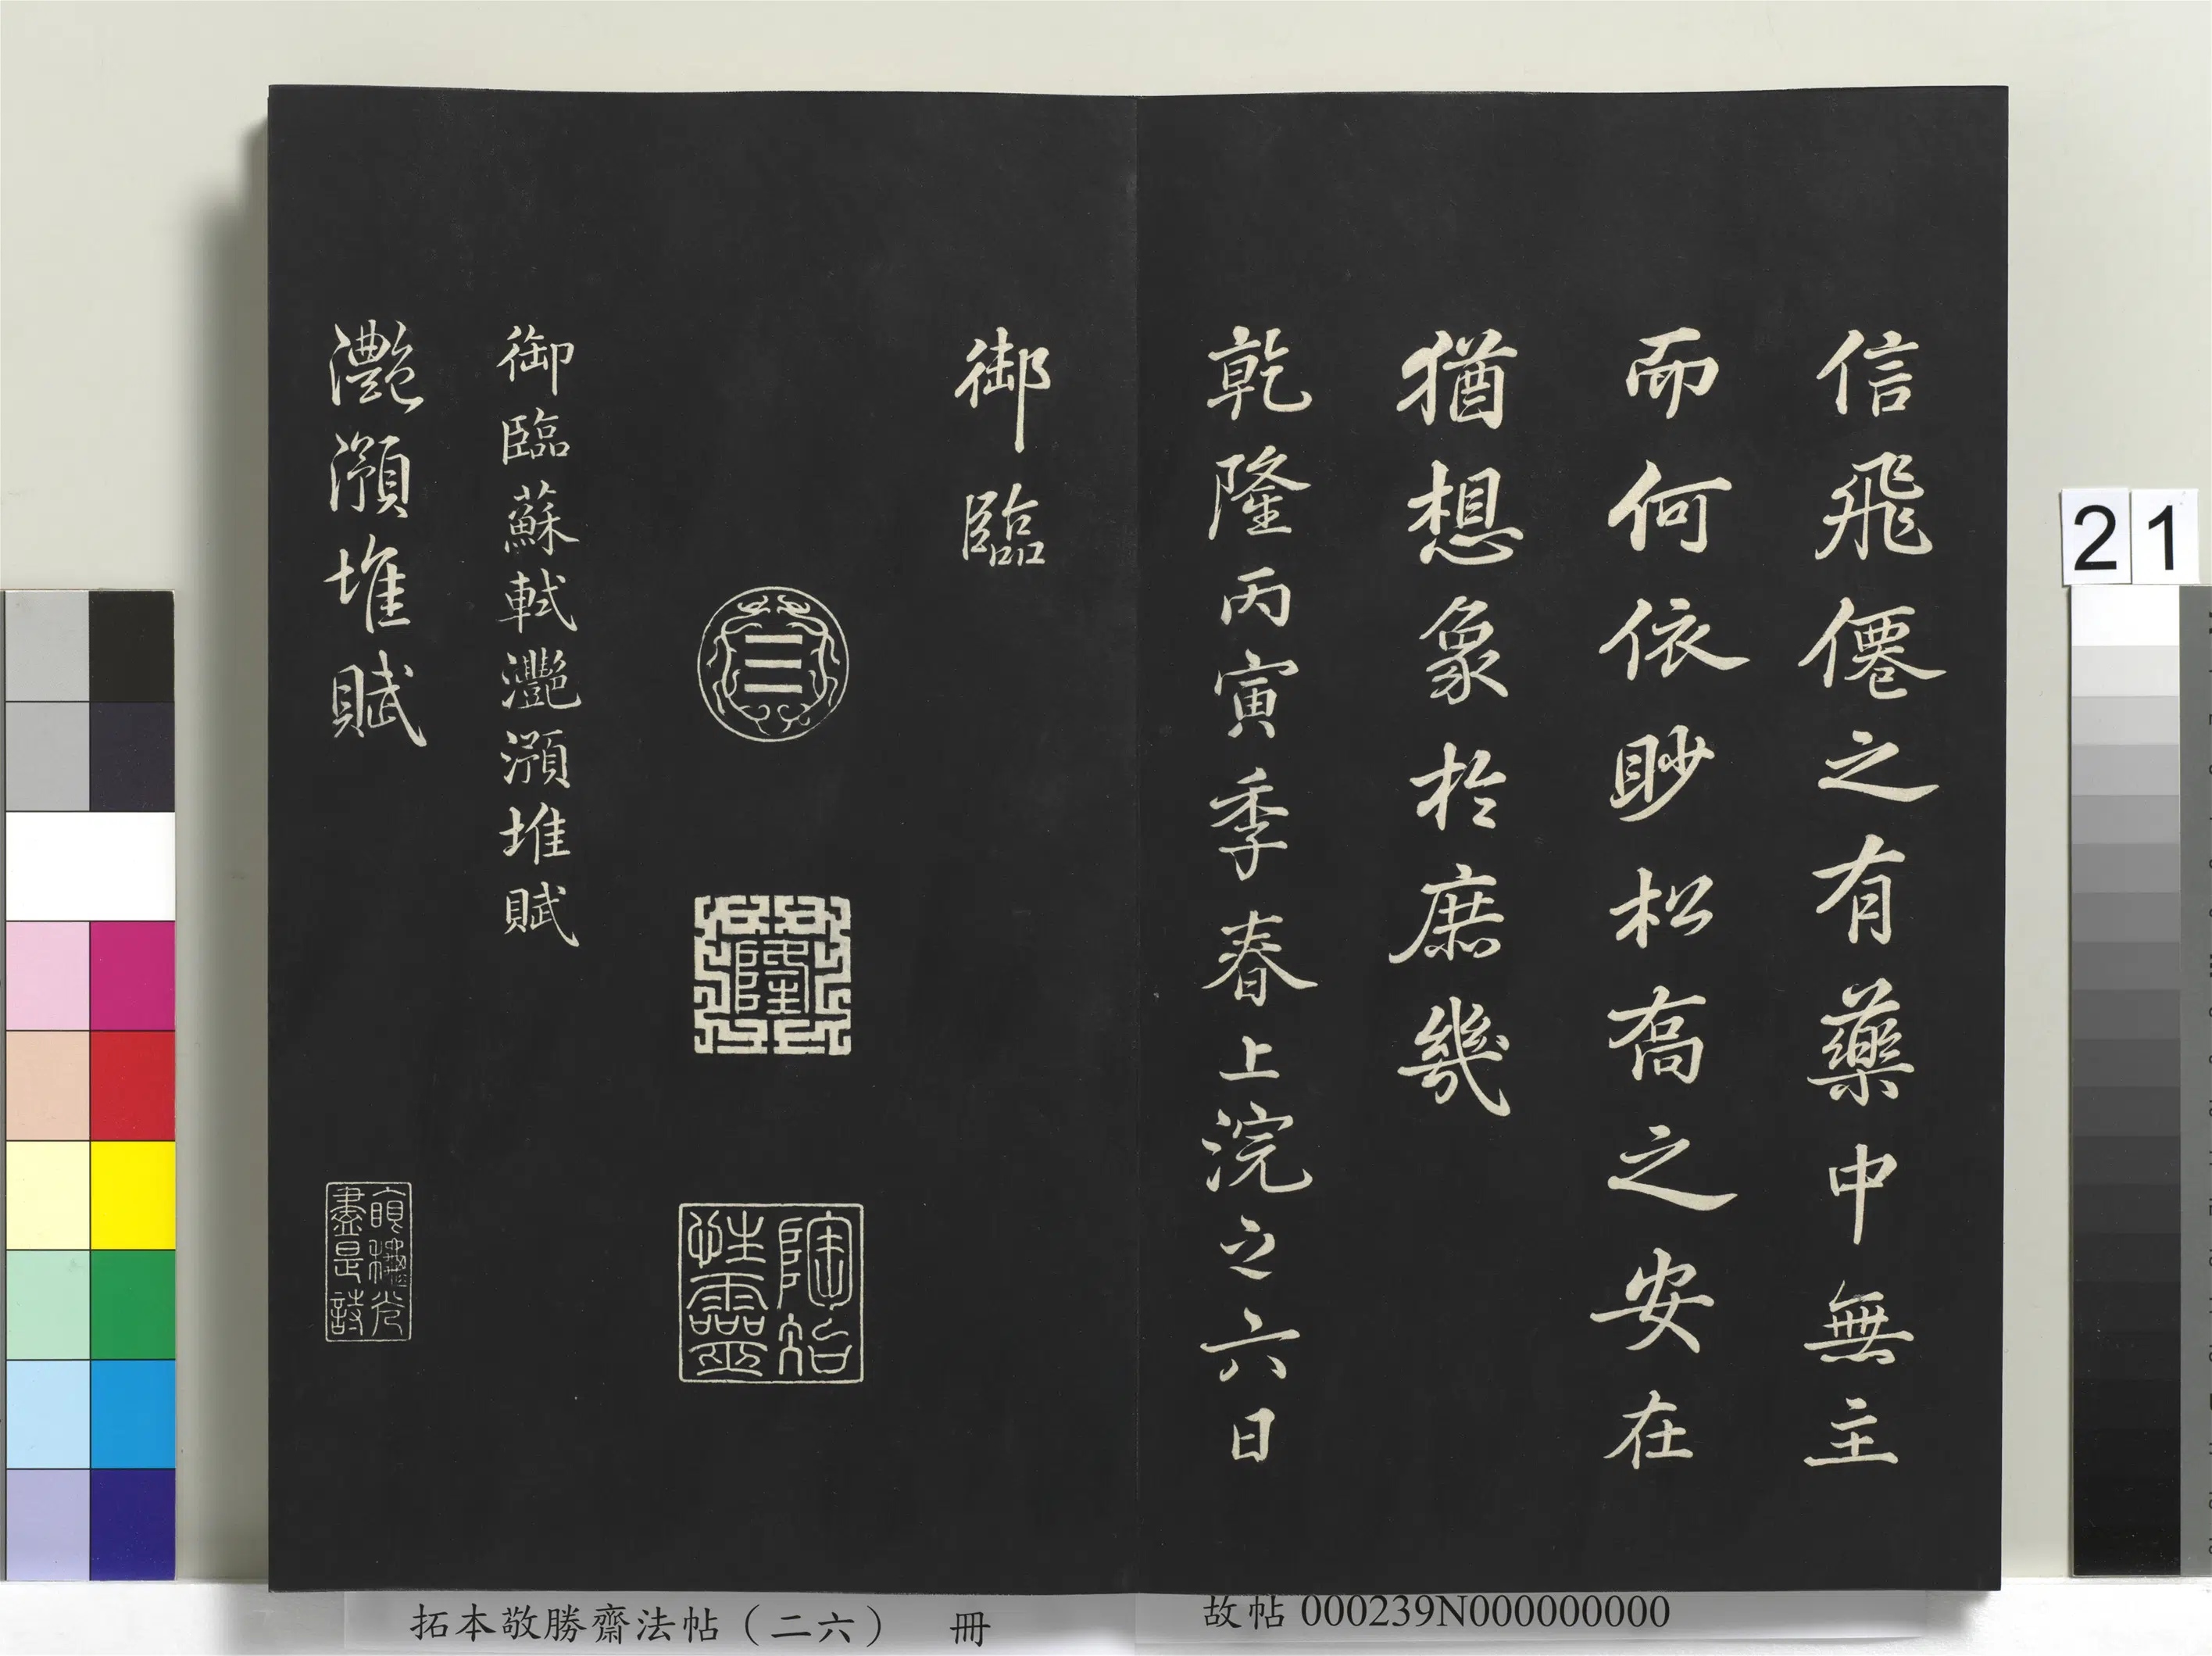 信飛僊之有藥中無主
而何依眇松喬之安在
猶想象於庶幾
乾隆丙寅季春上浣之六日
御臨
隆
陶冶性靈
御臨蘇軾灔澦堆賦
灔澦堆賦
盡是詩
拓本敬勝齋法帖（二六） 冊
故帖000239N000000000
21